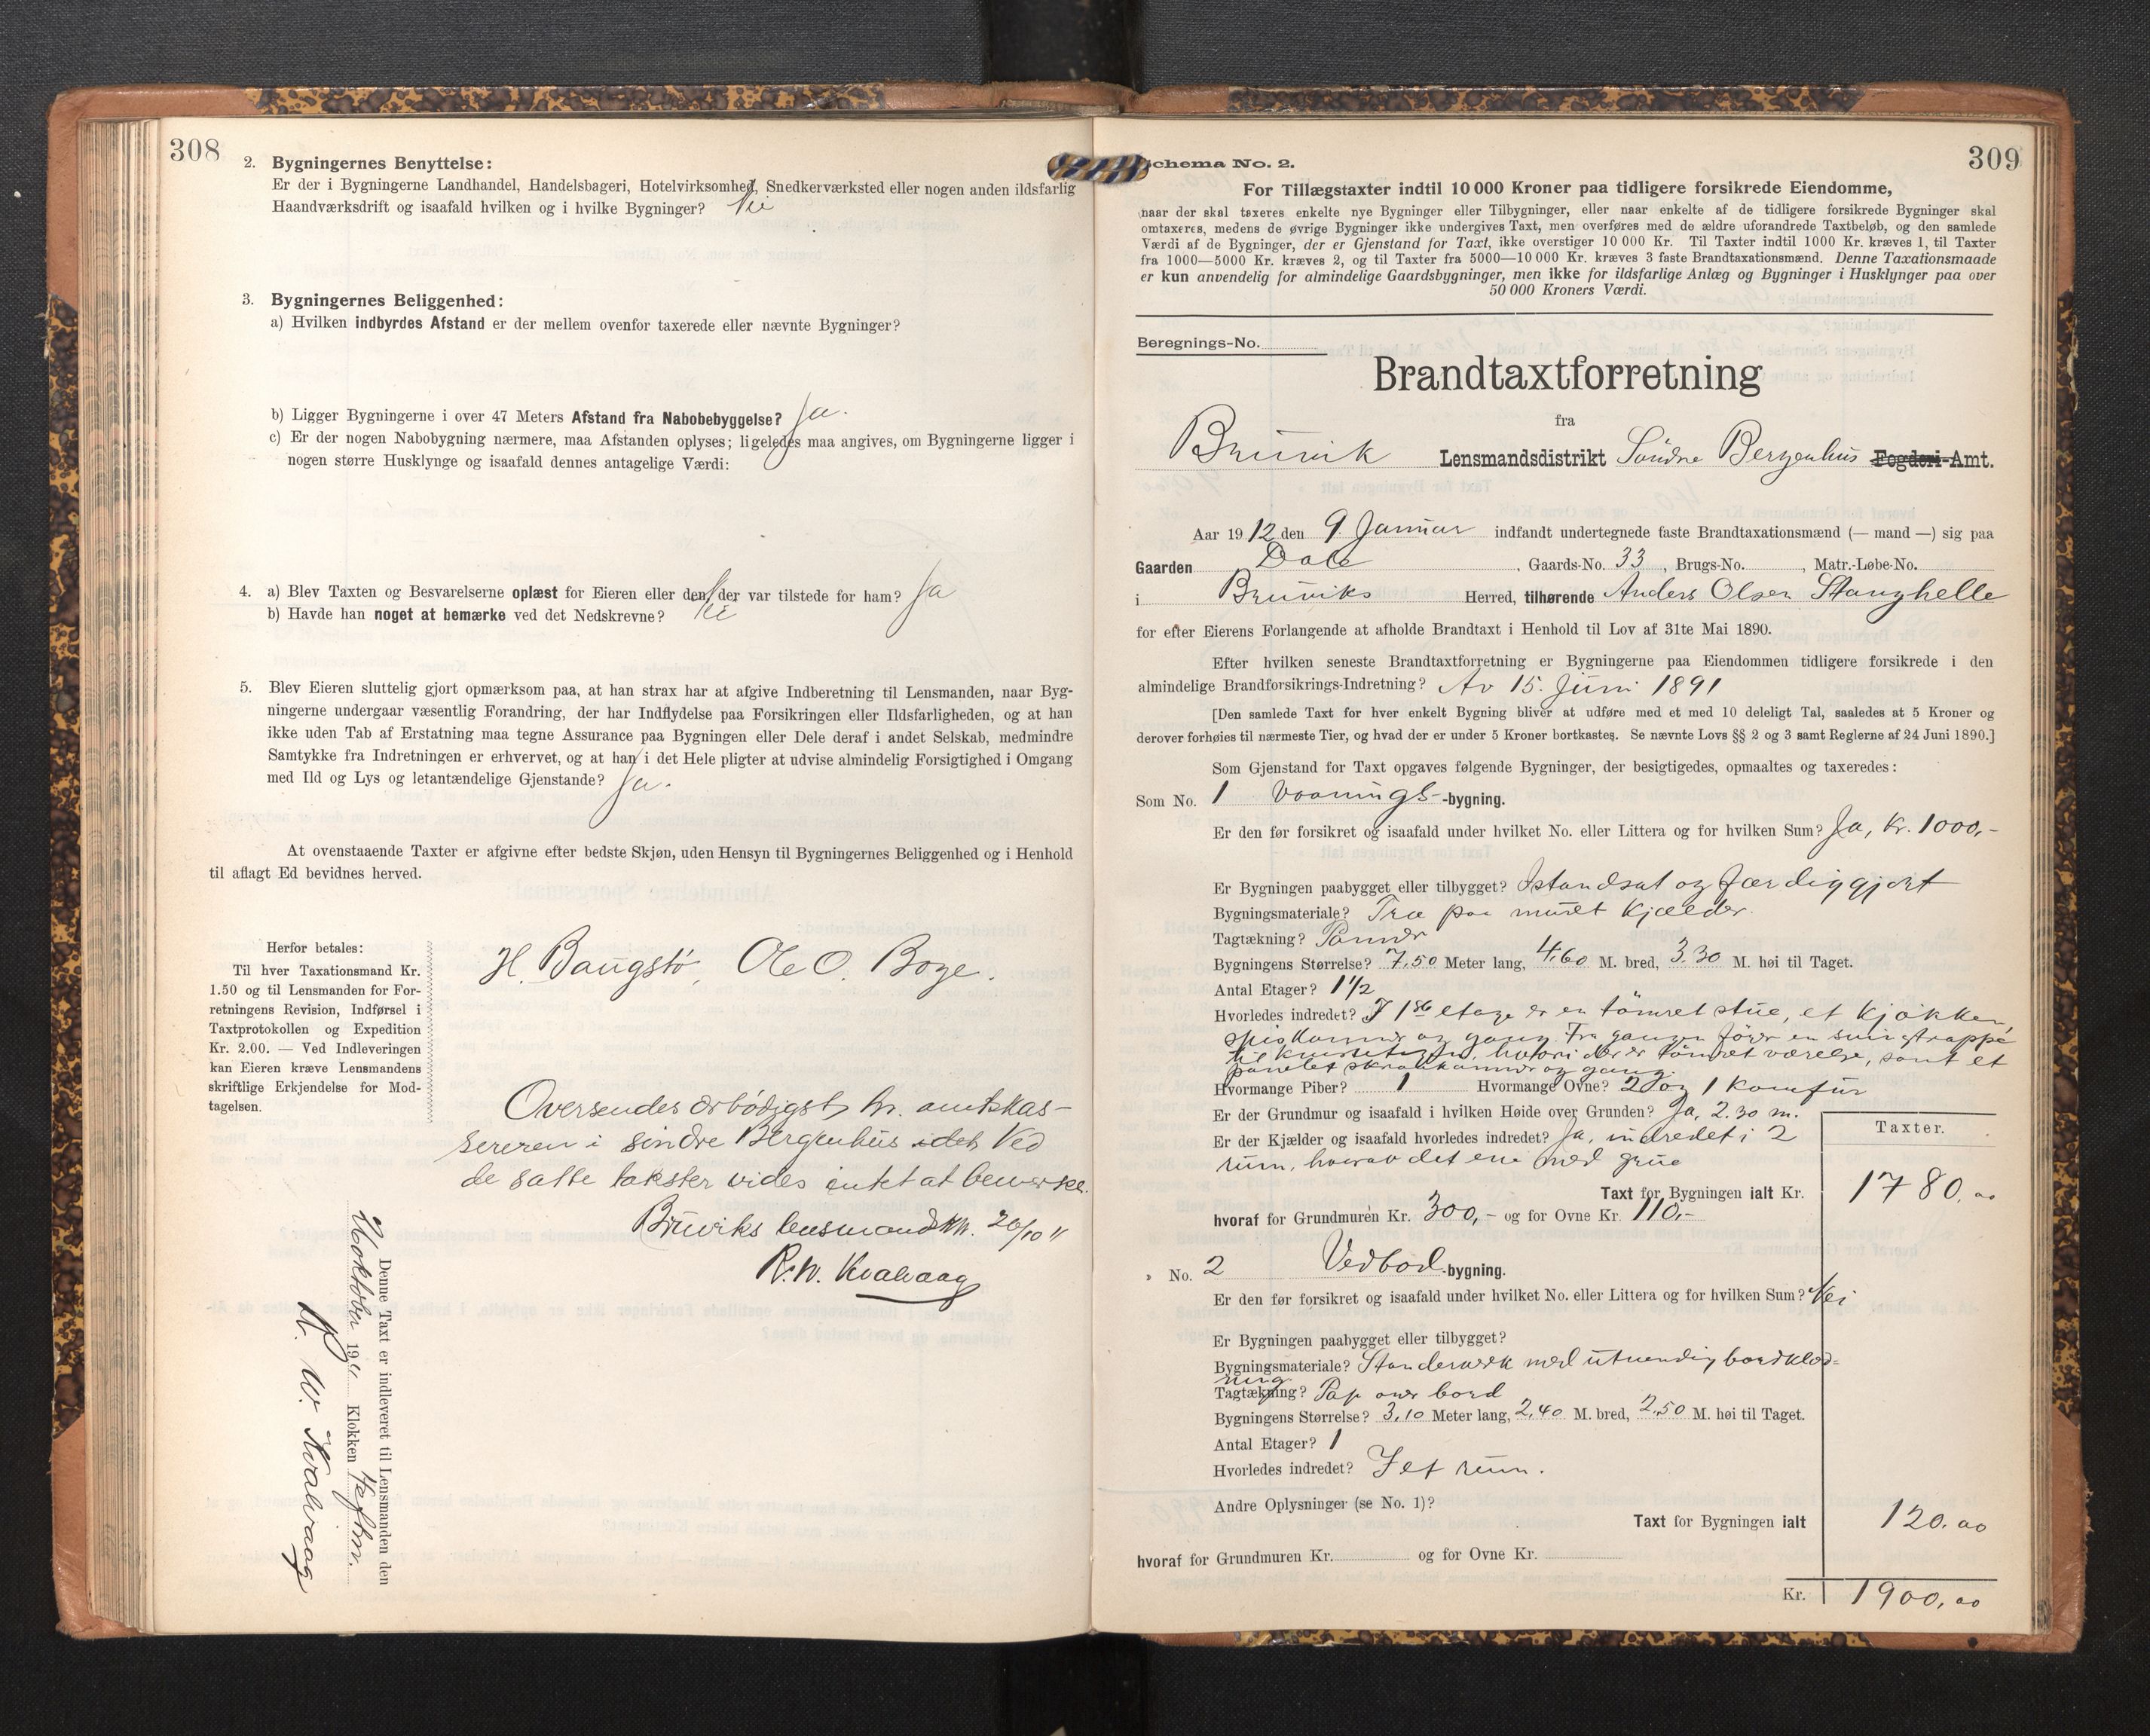 308
2. Bygningernes Benyttelse:
Er der i Bygningerne Landhandel, Handelsbageri, Hotelvirksomhed, Snedkerværksted eller nogen anden ildsfarlig
Haandværksdrift og isaafald hvilken og i hvilke Bygninger? Nei
3. Bygningernes Beliggenhed:
a) Hvilken indbyrdes Afstand er der mellem ovenfor taxerede eller nævnte Bygninger?
b) Ligger Bygningerne i over 47 Meters Afstand fra Nabobebyggelse? Ja.
c) Er der nogen Nabobygning nærmere, maa Afstanden oplyses; ligeledes maa angives, om Bygningerne ligger i
nogen større Husklynge og isaafald dennes antagelige Værdi:
4. a) Blev Taxten og Besvarelserne oplæst for Eieren eller den, der var tilstede for ham? Ja
b) Havde han noget at bemærke ved det Nedskrevne? Nei
5. Blev Eieren sluttelig gjort opmærksom paa, at han strax har at afgive Indberetning til Lensmanden, naar Byg-
ningerne undergaar væsentlig Forandring, der har Indflydelse paa Forsikringen eller Ildsfarligheden, og at han
ikke uden Tab af Erstatning maa tegne Assurance paa Bygningen eller Dele deraf i andet Selskab, medmindre
Samtykke fra Indretningen er erhvervet, og at han i det Hele pligter at udvise almindelig Forsigtighed i Omgang
med Ild og Lys og letantændelige Gjenstande? Ja.
At ovenstaaende Taxter er afgivne efter bedste Skjøn, uden Hensyn til Bygningernes Beliggenhed og i Henhold
til aflagt Ed bevidnes herved.
Herfor betales:
Til hver Taxationsmand Kr.
1.50 og til Lensmanden for For-
retningens Revision, Indførsel i
Taxtprotokollen og Expedition
Kr. 2.00. — Ved Indleveringen
kan Eieren kræve Lensmandens
skriftlige Erkjendelse for Mod-
tagelsen.
H. Baugstø, Ole O. Boge.
Oversendes ærbødigst hr. amtskas-
sereren i søndre Bergenhus idet Ved
de satte takster vides intet at bemerke.
Bruviks lensmandskk. 20/10 11
R. W. Kvalvaag
Denne Taxt er indleveret til Lensmanden den
oktober 1911 Klokken 4 eftm.
R. W. Kvalvaag
Schema No. 2.
309
For Tillægstaxter indtil 10 000 Kroner paa tidligere forsikrede Eiendomme,
naar der skal taxeres enkelte nye Bygninger eller Tilbygninger, eller naar enkelte af de tidligere forsikrede Bygninger skal
omtaxeres, medens de øvrige Bygninger ikke undergives Taxt, men overføres med de ældre uforandrede Taxtbeløb, og den samlede
Værdi af de Bygninger, der er Gjenstand for Taxt, ikke overstiger 10 000 Kr. Til Taxter indtil 1000 Kr. kræves 1, til Taxter
fra 1000—5000 Kr. kræves 2, og til Taxter fra 5000—10 000 Kr. kræves 3 faste Brandtaxationsmænd. Denne Taxationsmaade
er kun anvendelig for almindelige Gaardsbygninger, men ikke for ildsfarlige Anlæg og Bygninger i Husklynger paa over
50 000 Kroners Værdi.
Beregnings-No.
Brandtaxtforretning
fra
Bruvik Lensmandsdistrikt Søndre Bergenhus Fogderi-Amt.
Aar 1912 den 9 Januar indfandt undertegnede faste Brandtaxationsmænd (— mand —) sig paa
Gaarden Dale, Gaards-No. 33, Brugs-No. , Matr.-Løbe-No.
i Bruviks Herred, tilhørende Anders Olsen Stanghelle
for efter Eierens Forlangende at afholde Brandtaxt i Henhold til Lov af 31te Mai 1890.
Efter hvilken seneste Brandtaxtforretning er Bygningerne paa Eiendommen tidligere forsikrede i den
almindelige Brandforsikrings-Indretning? Av 15. Juni 1891
[Den samlede Taxt for hver enkelt Bygning bliver at udføre med et med 10 deleligt Tal, saaledes at 5 Kroner og
derover forhøies til nærmeste Tier, og hvad der er under 5 Kroner bortkastes. Se nævnte Lovs §§ 2 og 3 samt Reglerne af 24 Juni 1890.]
Som Gjenstand for Taxt opgaves følgende Bygninger, der besigtigedes, opmaaltes og taxeredes:
Som No. 1 Vaanings-bygning.
Er den før forsikret og isaafald under hvilket No. eller Littera og for hvilken Sum? Ja, Kr. 1000,-
Er Bygningen paabygget eller tilbygget? Istandsat og færdiggjort
Bygningsmateriale? Træ paa muret kjælder.
Tagtækning? Panner
Bygningens Størrelse? 7,50 Meter lang, 4,60 M. bred, 3.30 M. høi til Taget.
Antal Etager? 1 1/2
Hvorledes indredet? I 1ste etage er en tømret stue, et kjøkken,
spiskammer og gang. Fra gangen fører en svingtrappe
til kvistetagen, hvori der er tømret værelse, samt et
panelet skraakammer og gang.
Hvormange Piber? 1 Hvormange Ovne? 2 og 1 komfur
Er der Grundmur og isaafald i hvilken Høide over Grunden? Ja, 2.30 m.
Er der Kjælder og isaafald hvorledes indredet? Ja, indredet i 2
rum, hvorav det ene med grue
Taxter.
Taxt for Bygningen ialt Kr. 1780.00
hvoraf for Grundmuren Kr. 300,- og for Ovne Kr. 110,-
» No. 2 Vedbod-bygning.
Er den før forsikret og isaafald under hvilket No. eller Littera og for hvilken Sum? Nei
Er Bygningen paabygget eller tilbygget?
Bygningsmateriale? Standerverk med utvendig bordklæd-
ning
Tagtækning? Pap over bord
Bygningens Størrelse? 3,10 Meter lang, 2,40 M. bred, 2,50 M. høi til Taget.
Antal Etager? 1
Hvorledes indredet? I et rum.
Andre Oplysninger (se No. 1)?
Taxt for Bygningen ialt 120.00
hvoraf for Grundmuren Kr. og for Ovne Kr.
Kr. 1900,00